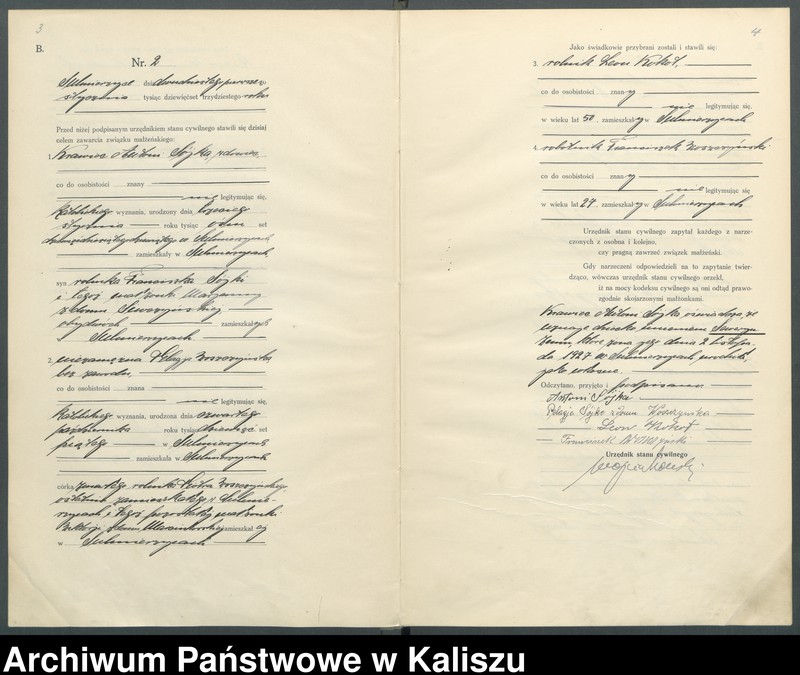 3
B.
Nr. 2
Sulmierzyce dnia dwudziestego pierwszego
stycznia tysiąc dziewięćset trzydziestego roku
Przed niżej podpisanym urzędnikiem stanu cywilnego stawili się dzisiaj
celem zawarcia związku małżeńskiego:
1. Krawiec Antoni Sójka, wdowiec,
co do osobistości znany
nie legitymując się,
katolickiego wyznania, urodzony dnia
stycznia roku tysiąc ośm set
w Sulmierzycach
zamieszkały w Sulmierzycach
syn rolnika Franciszka Sójki
i tegoż małżonki Maryanny
z domu
obydwóch zamieszkałych
w Sulmierzycach
2. niezamężna Pelagja
bez zawodu,
co do osobistości znana
nie legitymując się,
katolickiego wyznania, urodzona dnia czwartego
października roku tysiąc dziewięć set
piątego w Sulmierzycach
zamieszkała w Sulmierzycach
córka zmarłego rolnika
ostatnio zamieszkałego w Sulmie-
rzycach i tegoż pozostałej małżonki
z domu zamieszkałej
w Sulmierzycach
4
Jako świadkowie przybrani zostali i stawili się:
3. rolnik Leon Kokot,
co do osobistości znany
nie legitymując się,
w wieku lat 50, zamieszkały w Sulmierzycach
4. robotnik Franciszek
co do osobistości znany
nie legitymując się,
w wieku lat 27 zamieszkały w Sulmierzycach
Urzędnik stanu cywilnego zapytał każdego z narze-
czonych z osobna i kolejno,
czy pragną zawrzeć związek małżeński.
Gdy narzeczeni odpowiedzieli na to zapytanie twier-
dząco, wówczas urzędnik stanu cywilnego orzekł,
iż na mocy kodeksu cywilnego są oni odtąd prawo-
zgodnie skojarzonymi małżonkami.
Krawiec Antoni Sójka oświadcza, że
uznaje dziecko imieniem Seweryn
które żona jego dnia 2 listopa-
da 1927 w Sulmierzycach porodziła,
jako własne.
Odczytano, przyjęto i podpisano
Antoni Sójka
Pelagja Sójka z domu
Leon Kokot
Franciszek
Urzędnik stanu cywilnego
Archiwum Państwowe w Kaliszu